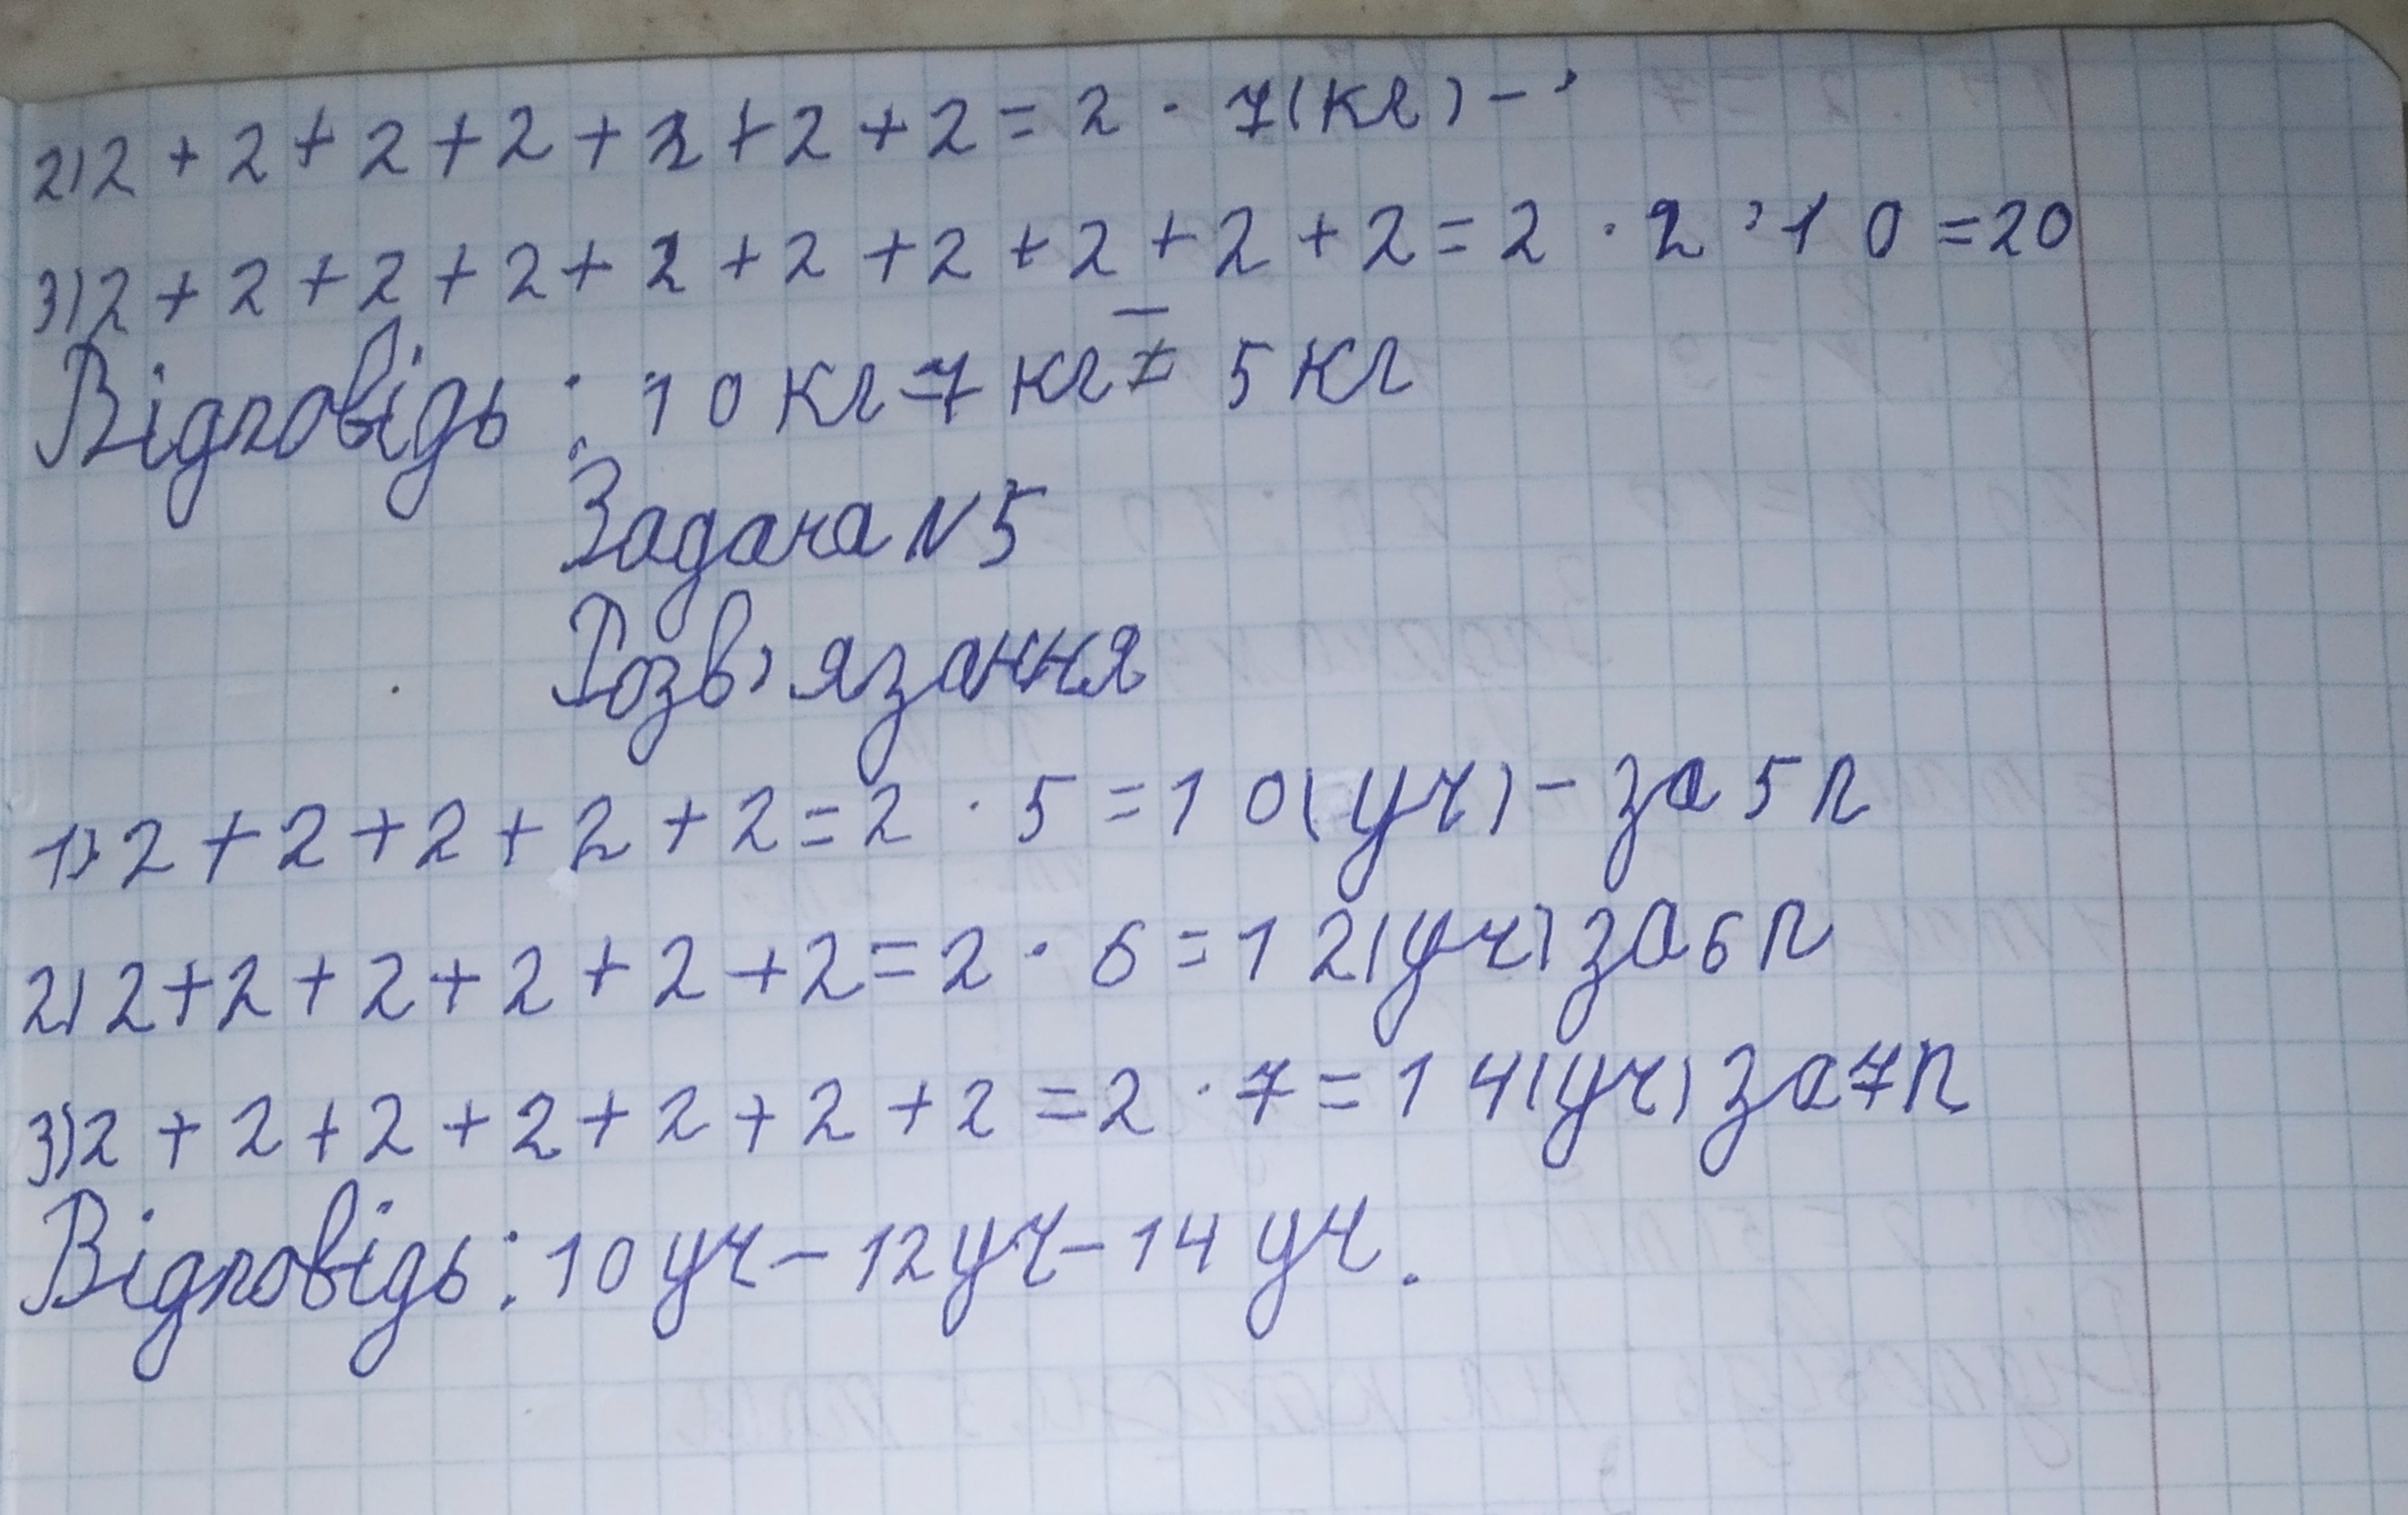 2) 2 + 2 + 2 + 2 + 2 + 2 + 2 = 2 · 7 (кг) -
3) 2 + 2 + 2 + 2 + 2 + 2 + 2 + 2 + 2 + 2 = 2 · 2 · 10 = 20
Відповідь: 10 кг - 7 кг - 5 кг
Задача N 5
Розв'язання
1) 2 + 2 + 2 + 2 + 2 = 2 · 5 = 10 (уч) - за 5 п
2) 2 + 2 + 2 + 2 + 2 + 2 = 2 · 6 = 12 (уч) за 6 п
3) 2 + 2 + 2 + 2 + 2 + 2 + 2 = 2 · 7 = 14 (уч) за 7 п
Відповідь: 10 уч - 12 уч - 14 уч.